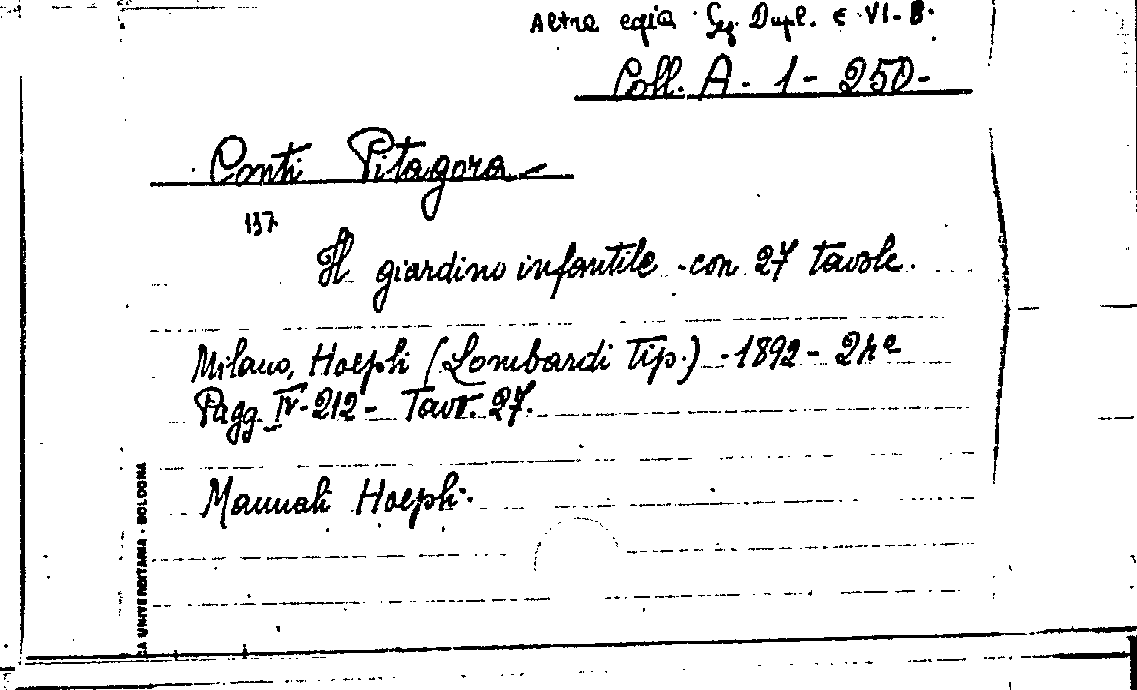 Altra copia Seg. Dupl. E VI-B.
Coll. A - 1 - 250 -
Conti Pitagora -
137
Il giardino infantile con 27 tavole.
Milano, Hoepli (Lombardi Tip.) - 1892 - 24°
Pagg. IV - 212 - Tavv. 27.
Manuali Hoepli.
CA UNIVERSITARIA - BOLOGNA